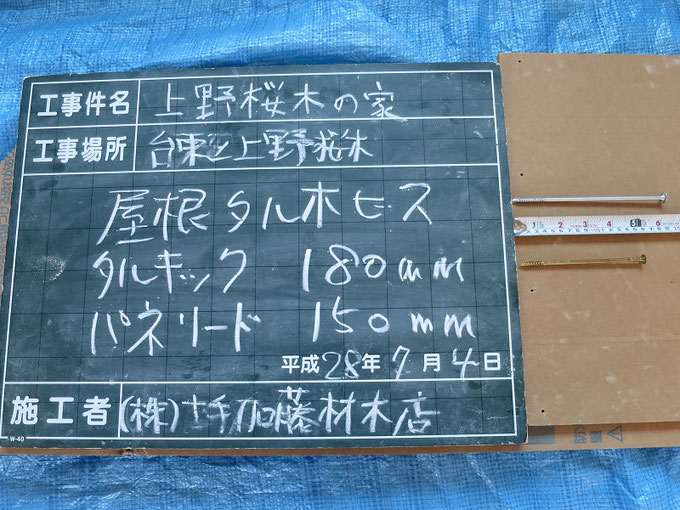 工事件名 上野桜木の家
工事場所 台東区上野桜木
屋根タルホビス
タルキック 180mm
パネリード 150mm
平成28年7月4日
施工者 (株) 加藤材木店
W-40